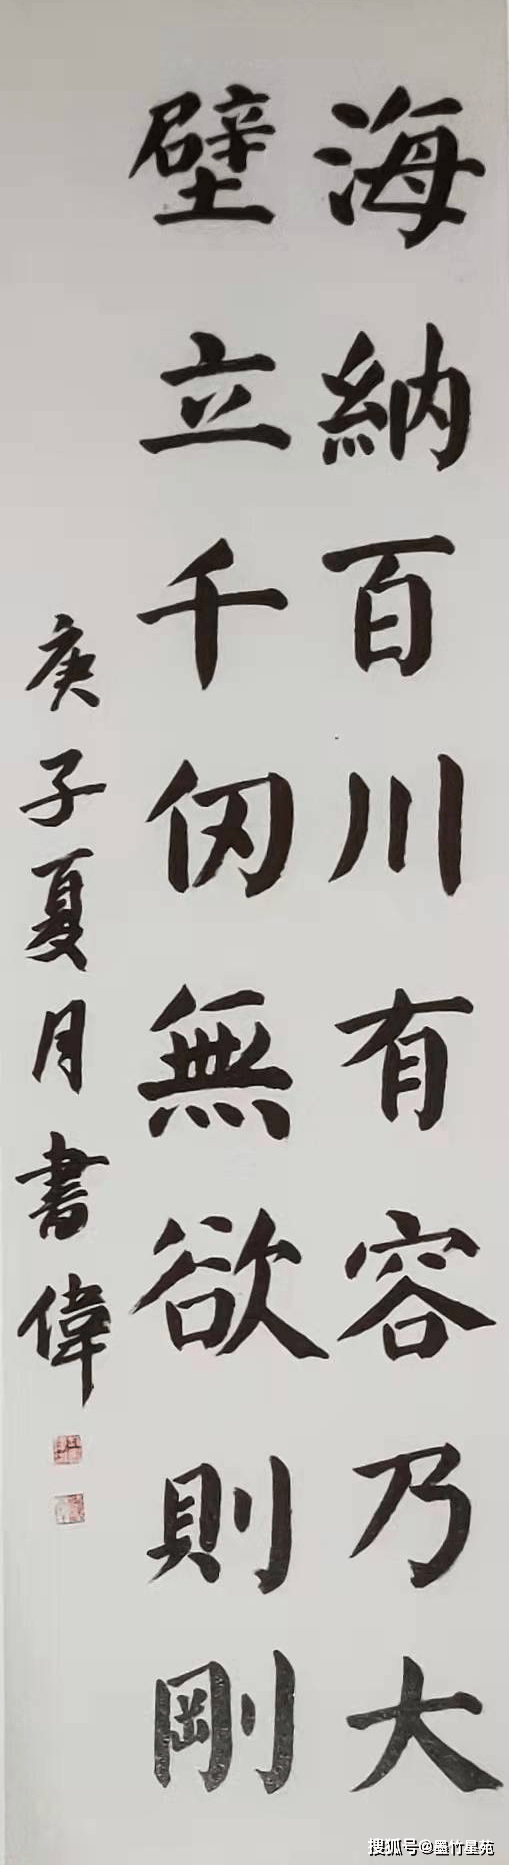 海納百川有容乃大
壁立千仞無欲則剛
庚子夏月書偉
搜狐号@墨竹星苑